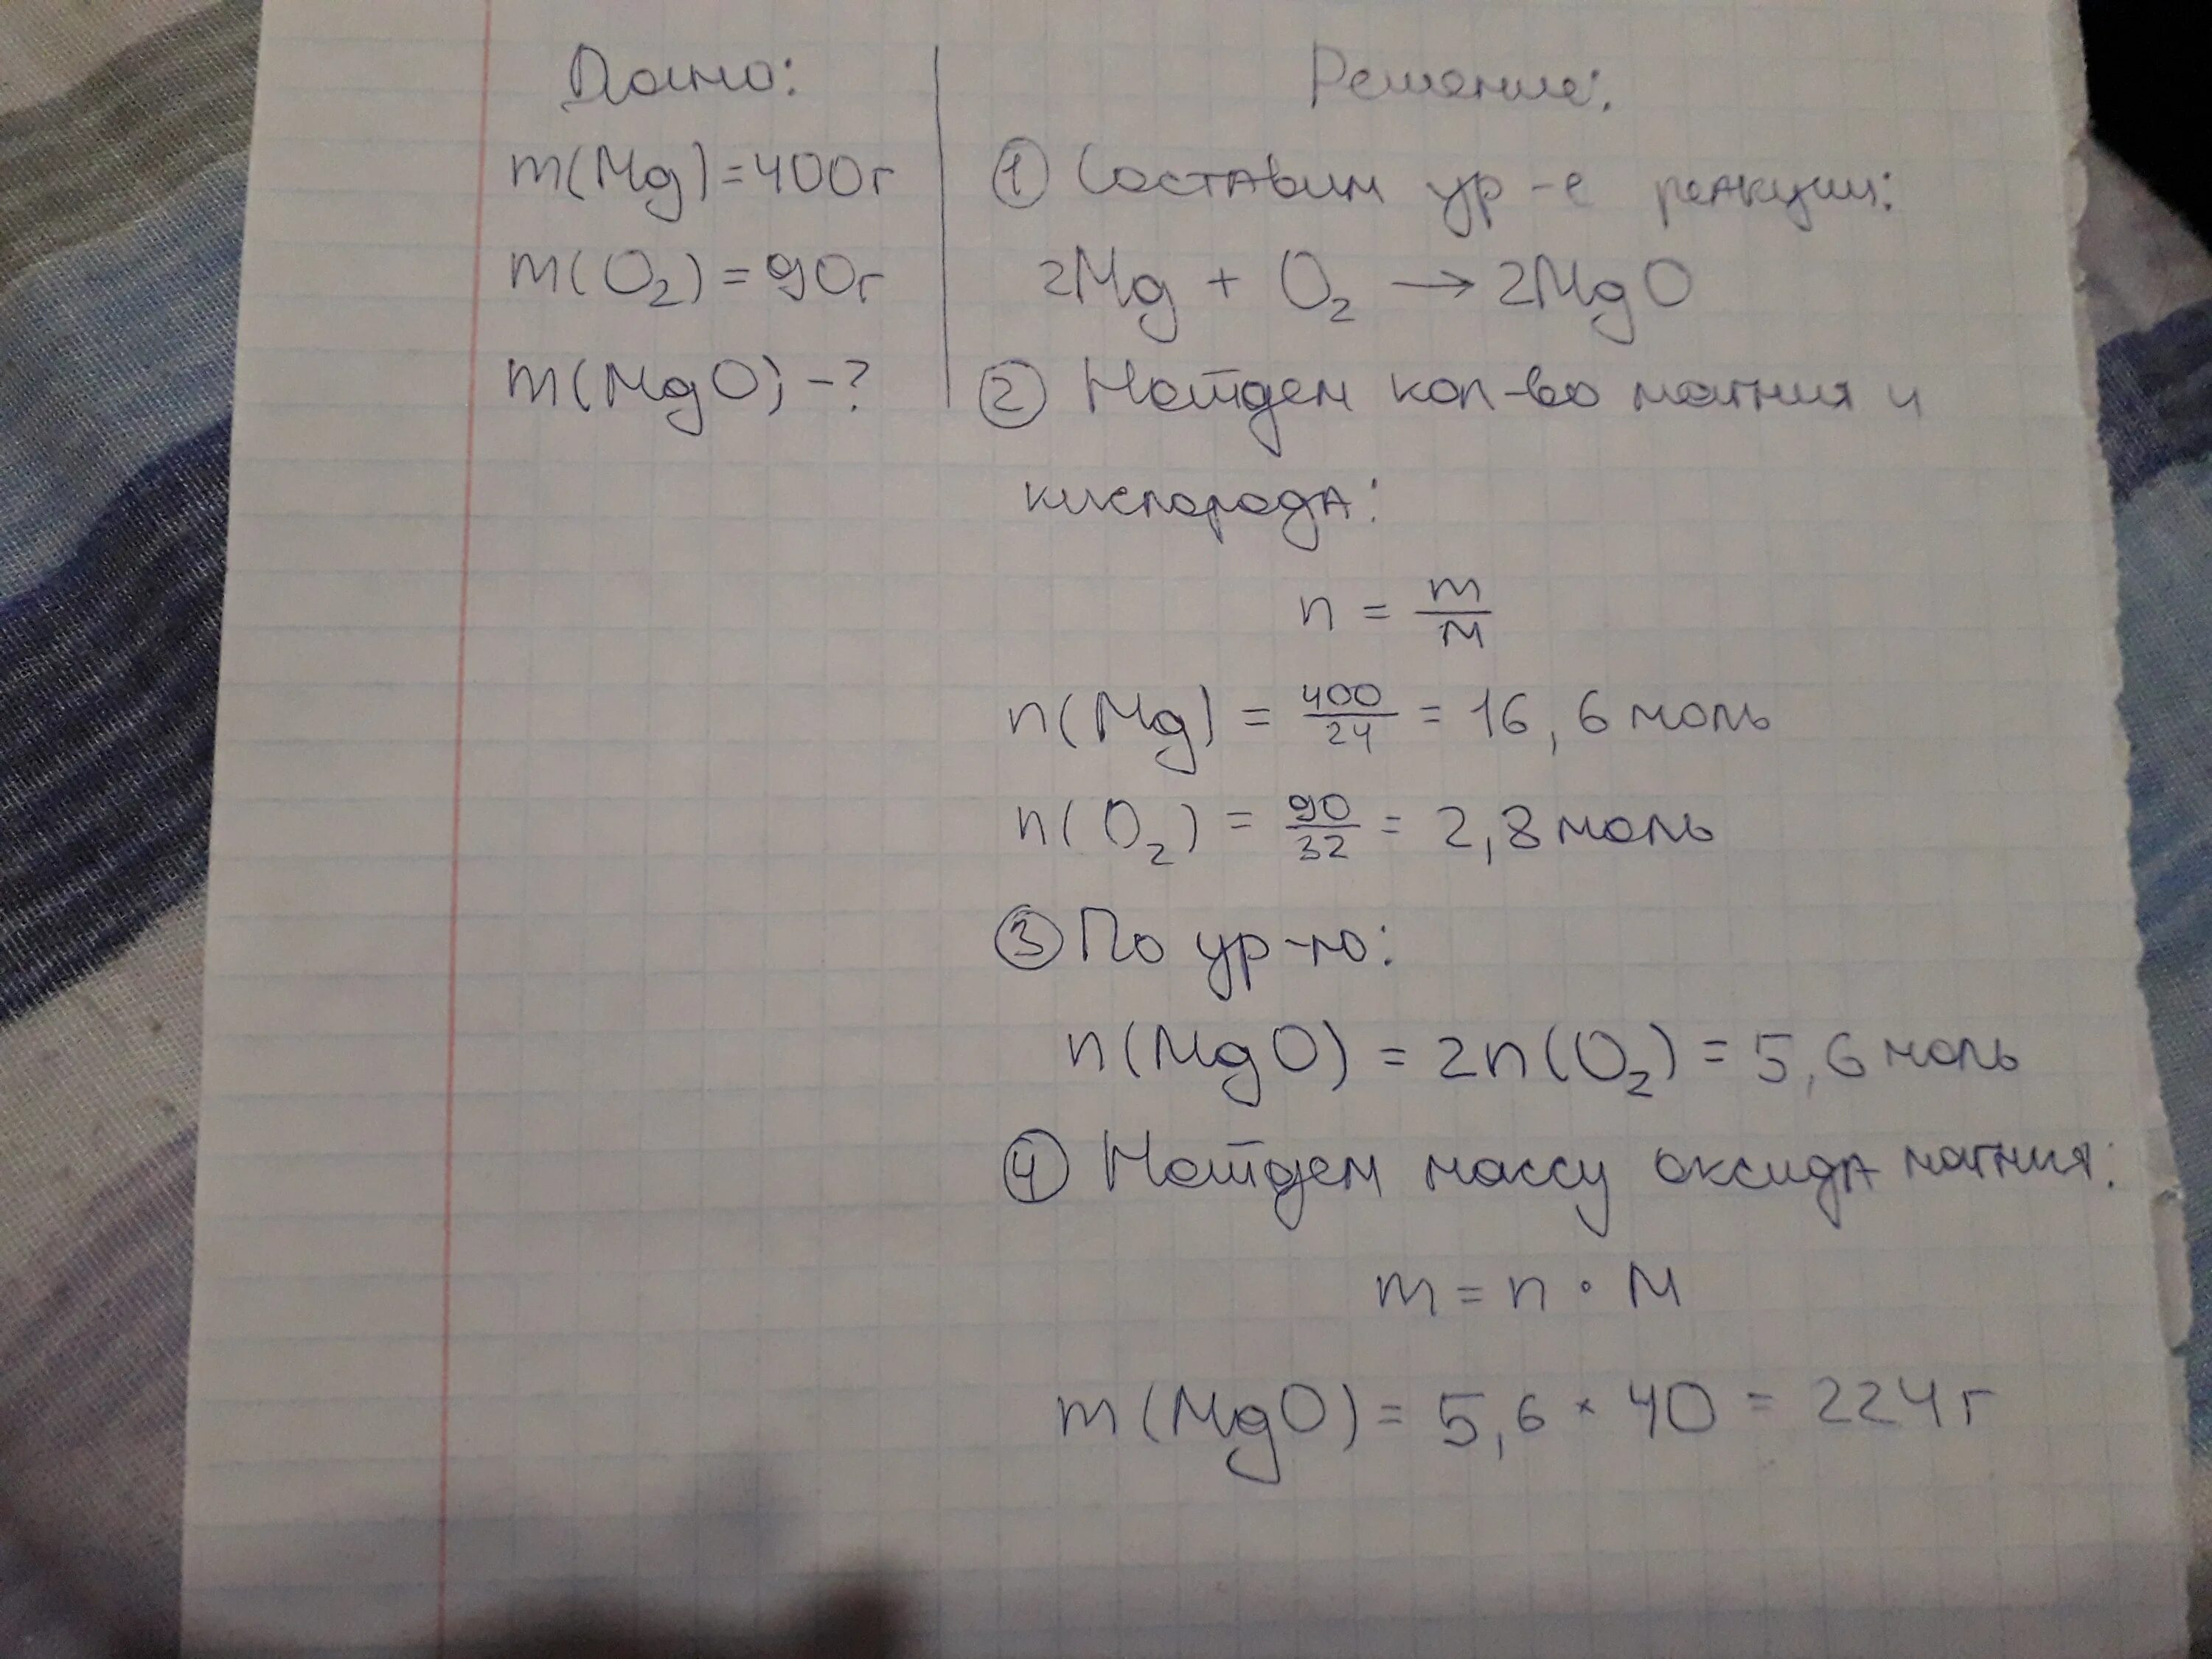 Дано:
m(Mg)=400г
m(O₂)=90г
m(MgO)-?
Решение:
① Составим ур-е реакции:
2Mg + O₂ → 2MgO
② Найдем кол-во магния и
кислорода:
n = m/M
n(Mg) = 400/24 = 16,6 моль
n(O₂) = 90/32 = 2,8 моль
③ По ур-ю:
n(MgO) = 2n(O₂) = 5,6 моль
④ Найдем массу оксида магния:
m = n · M
m(MgO) = 5,6 * 40 = 224г